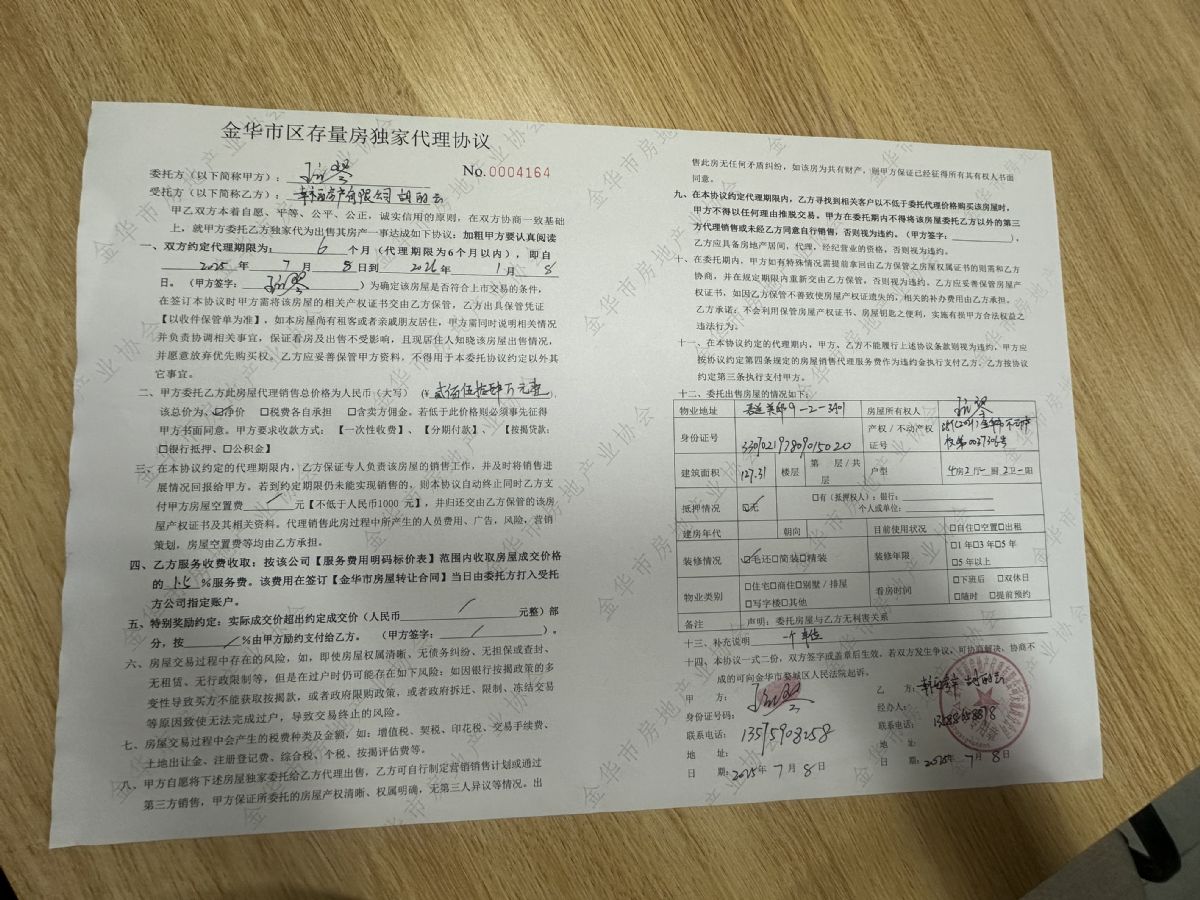 金华市区存量房独家代理协议
No.0004164
委托方（以下简称甲方）：
受托方（以下简称乙方）： 房产有限公司 胡
甲乙双方本着自愿、平等、公平、公正，诚实信用的原则，在双方协商一致基础
上，就甲方委托乙方独家代为出售其房产一事达成如下协议：加粗甲方要认真阅读
一、双方约定代理期限为： 6 个月（代理期限为6个月以内），即自
2025 年 7 月 8 日到 2026 年 1 月 8
日。（甲方签字： ）为确定该房屋是否符合上市交易的条件，
在签订本协议时甲方需将该房屋的相关产权证书交由乙方保管，乙方出具保管凭证
【以收件保管单为准】，如本房屋尚有租客或者亲戚朋友居住，甲方需同时说明相关情况
并负责协调相关事宜，保证看房及出售不受影响，且现居住人知晓该房屋出售情况，
并愿意放弃优先购买权。乙方应妥善保管甲方资料，不得用于本委托协议约定以外其
它事宜。
二、甲方委托乙方此房屋代理销售总价格为人民币（大写）（¥ 贰佰伍拾肆万元整），
该总价为、☑净价 □税费各自承担 □含卖方佣金。若低于此价格则必须事先征得
甲方书面同意。甲方要求收款方式：【一次性收费】、【分期付款】、【按揭贷款：
□银行抵押、□公积金】
三、在本协议约定的代理期限内，乙方保证专人负责该房屋的销售工作，并及时将销售进
展情况回报给甲方。若到约定期限仍未能实现销售的，则本协议自动终止同时乙方支
付甲方房屋空置费 / 元【不低于人民币1000 元】，并归还交由乙方保管的该房
屋产权证书及其相关资料。代理销售此房过程中所产生的人员费用、广告，风险，营销
策划，房屋空置费等均由乙方承担。
四、乙方服务收费收取：按该公司【服务费用明码标价表】范围内收取房屋成交价格
的 1.5 %服务费。该费用在签订【金华市房屋转让合同】当日由委托方打入受托
方公司指定账户。
五、特别奖励约定：实际成交价超出约定成交价（人民币 / 元整）部
分，按 / %由甲方励约支付给乙方。（甲方签字： / ）。
六、房屋交易过程中存在的风险，如，即使房屋权属清晰、无债务纠纷、无担保或查封、
无租赁、无行政限制等，但是在过户时仍可能存在如下风险：如因银行按揭政策的多
变性导致买方不能获取按揭款，或者政府限购政策，或者政府拆迁、限制、冻结交易
等原因致使无法完成过户，导致交易终止的风险。
七、房屋交易过程中会产生的税费种类及金额，如：增值税、契税、印花税、交易手续费、
土地出让金、注册登记费、综合税、个税、按揭评估费等。
八、甲方自愿将下述房屋独家委托给乙方代理出售，乙方可自行制定营销销售计划或通过
第三方销售，甲方保证所委托的房屋产权清晰、权属明确，无第三人异议等情况。出
售此房无任何矛盾纠纷，如该房为共有财产，则甲方保证已经征得所有其有权人书面
同意。
九、在本协议约定代理期限内，乙方寻找到相关客户以不低于委托代理价格购买该房屋时，
甲方不得以任何理由推脱交易。甲方在委托期内不得将该房屋委托乙方以外的第三
方代理销售或未经乙方同意自行销售，否则视为违约。（甲方签字： ），
乙方应具备房地产居间，代理，经纪营业的资格，否则视为违约。
十、在委托期内，甲方如有特殊情况需提前拿回由乙方保管之房屋权属证书的则需和乙方
协商，并在规定期限内重新交由乙方保管，否则视为违约，乙方应妥善保管房屋产
权证书，如因乙方保管不善致使房屋产权证遗失的，相关的补办费用由乙方承担。
乙方承诺：不会利用保管房屋产权证书、房屋钥匙之便利，实施有损甲方合法权益之
违法行为。
十一、在本协议约定的代理期内，甲方、乙方不能履行上述协议条款则视为违约，甲方应
按协议约定第四条规定的房屋销售代理服务费作为违约金执行支付乙方，乙方按协议
约定第三条执行支付甲方。
十二、委托出售房屋的情况如下：
物业地址 9-2-3401 房屋所有权人
身份证号 330702197809015020 产权/不动产权证号 第0027306号
建筑面积 127.31 楼层 第 层/共 层 户型 4房2厅一厨2卫一阳
抵押情况 ☑无 □有（抵押权人）：银行：
个人或单位：
建房年代 朝向 目前使用状况 □自住□空置□出租
装修情况 ☑毛坯□简装□精装 装修年限 □1年□3年□5年
□5年以上
物业类别 □住宅□商住□别墅/排屋
□写字楼□其他 看房时间 □下班后 □双休日
□随时 □提前预约
备注 声明：委托房屋与乙方无利害关系
十三、补充说明 一个车位
十四、本协议一式二份，双方签字或盖章后生效，若双方发生争议、可协商解决，协商不
成的可向金华市婺城区人民法院起诉。
甲 方：
身份证号码：
联系电话： 13575908258
地 址：
日 期：2025年 7 月 8 日
乙 方：
经办人：
联系电话：
地 址：
日 期：2025年 7 月 8 日
金华市房地产业协会